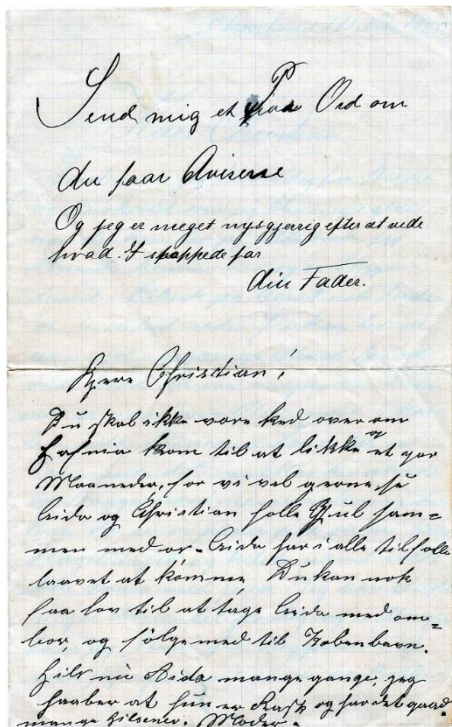 Send mig et Paa Ord om
du faar Aviserne
Og jeg er meget nysgjærig efter at vide
hvad I stoppede for
din Fader.
Kjere Christian!
Du skal ikke være ked over om
Hafnia kom til at ligge og et par
Maaneder, for vi vil gerne se
Aida og Christian holle Jul sam=
men med os. Aida har i alle tilfelle
laavet at komme Du kan nok
faa lov til at tage Aida med om=
bor, og følge med til København.
Hils nu Aida mange gange, jeg
haaber at hun er Rask og har det godt
mange Hilsener. Moder.